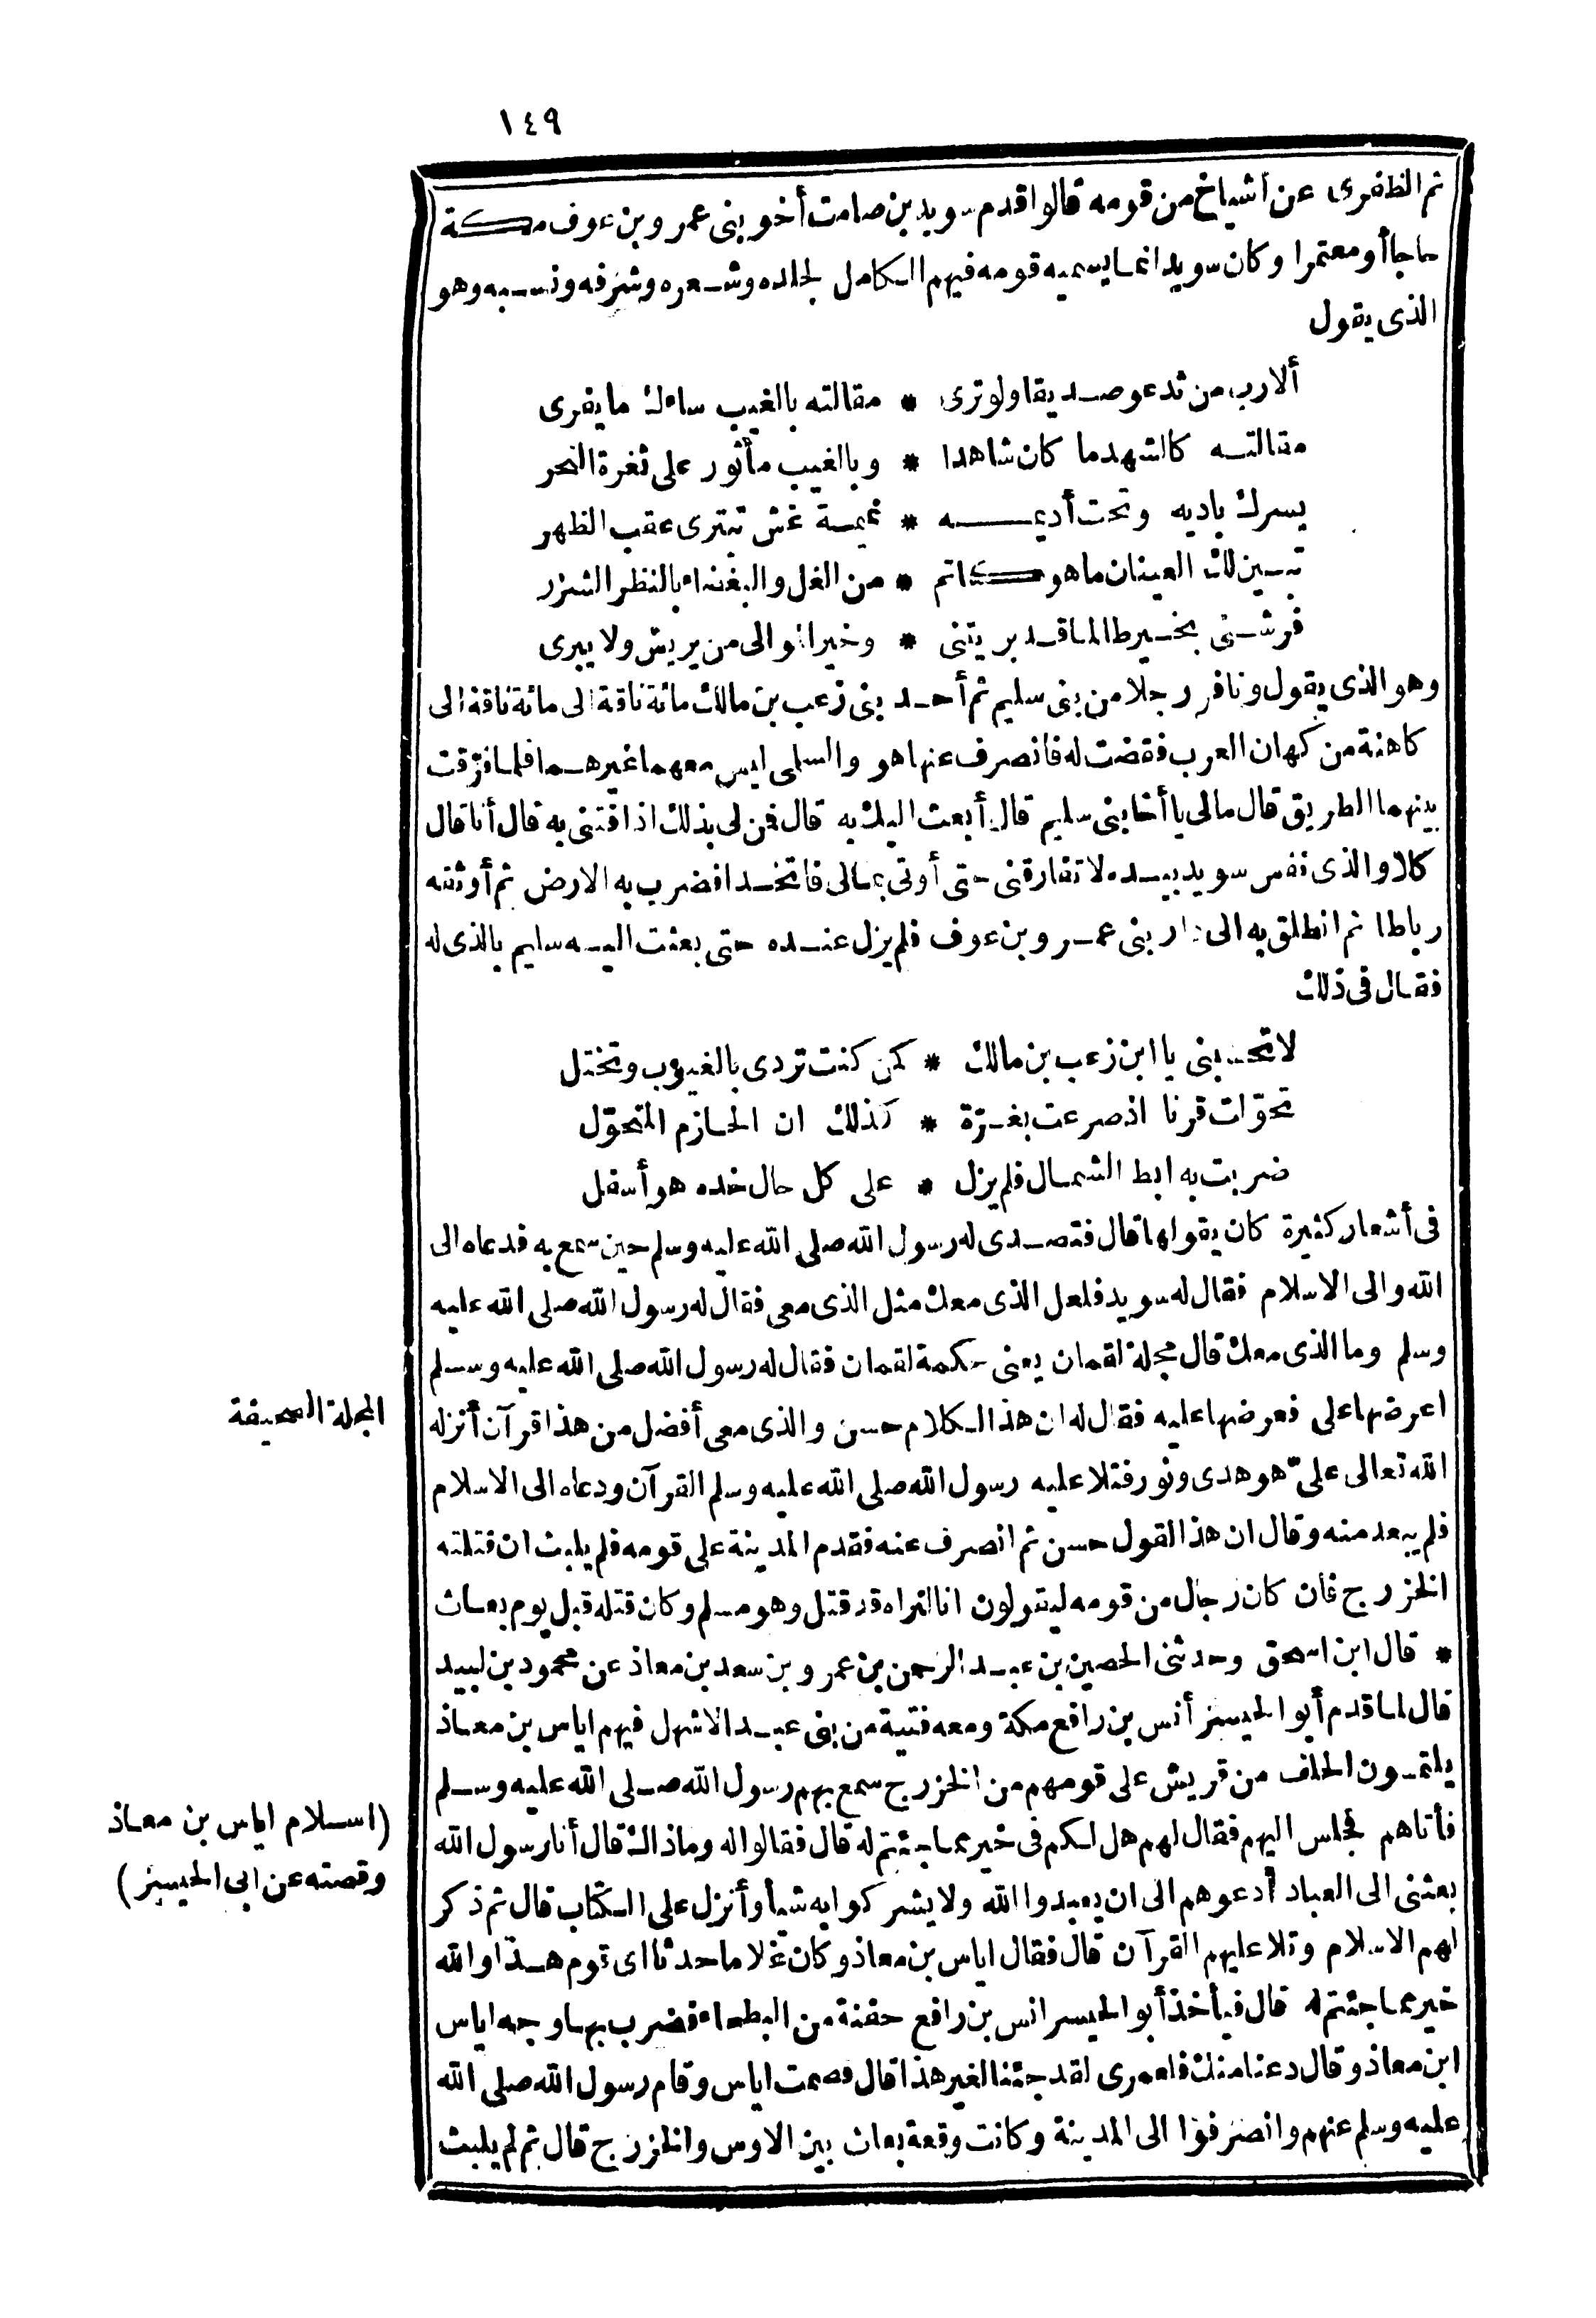 ١٤٩
ثم الظفرى عن أشياخ من قومه قالوا قدم سويد بن صامت أخو بنى عمرو بن عوف مكة
حاجا أو معتمرا وكان سويد انما يسميه قومه فيهم الكامل لجلده وشعره وشرفه ونسبه وهو
الذى يقول
ألا رب من تدعو صديقا ولو ترى * مقالته بالغيب ساءك ما يفرى
مقالته كالشهد ما كان شاهدا * وبالغيب مأثور على ثغرة النحر
يسرك باديه وتحت أديمه * نميمة غش تبترى عقب الظهر
تبين لك العينان ما هو كاتم * من الغل والبغضاء بالنظر الشزر
فرشنى بخير طالما قد بريتنى * وخير الموالى من يريش ولا يبرى
وهو الذى يقول ونافر رجلا من بنى سليم ثم أحد بنى زعب بن مالك مائة ناقة الى مائة ناقة الى
كاهنة من كهان العرب فقضت له فانصرف عنها هو والسلمى ليس معهما غيرهما فلما فرّقت
بينهما الطريق قال مالى يا أخا بنى سليم قال أبعث اليك به قال فمن لى بذلك اذا فتنى به قال أنا قال
كلا والذى نفس سويد بيده لا تفارقنى حتى أوتى بمالى فاتخدا فضرب به الارض ثم أوثقه
رباطا ثم انطلق به الى دار بنى عمرو بن عوف فلم يزل عنده حتى بعثت اليه سليم بالذى له
فقال فى ذلك
لا تحسبنى يا ابن زعب بن مالك * كمن كنت تردى بالغيوب وتختل
تحوّلت قرنا اذ صرعت بغرّة * كذلك ان الحازم المتحوّل
ضربت به ابط الشمال فلم يزل * على كل حال خده هو أسفل
فى أشعار كثيرة كان يقولها قال فتصدى له رسول الله صلى الله عليه وسلم حين سمع به فدعاه الى
الله والى الاسلام فقال له سويد فلعل الذى معك مثل الذى معى فقال له رسول الله صلى الله عليه
وسلم وما الذى معك قال مجلة لقمان يعنى حكمة لقمان فقال له رسول الله صلى الله عليه وسلم
اعرضها على فعرضها عليه فقال له ان هذا الكلام حسن والذى معى أفضل من هذا قرآن أنزله
المجلة الصحيفة
الله تعالى علىّ هو هدى ونور فتلا عليه رسول الله صلى الله عليه وسلم القرآن ودعاه الى الاسلام
فلم يبعد منه وقال ان هذا القول حسن ثم انصرف عنه فقدم المدينة على قومه فلم يلبث ان قتلته
الخزرج فان كان رجال من قومه ليقولون انا لنراه قد قتل وهو مسلم وكان قتله قبل يوم بعاث
* قال ابن اسحق وحدثنى الحصين بن عبد الرحمن بن عمرو بن سعد بن معاذ عن محمود بن لبيد
قال لما قدم أبو الحيسر أنس بن رافع مكة ومعه فتية من بنى عبد الاشهل فيهم اياس بن معاذ
يلتمسون الحلف من قريش على قومهم من الخزرج سمع بهم رسول الله صلى الله عليه وسلم
فأتاهم فجلس اليهم فقال لهم هل لكم فى خير مما جئتم له قال فقالوا له وماذاك قال أنا رسول الله
(اسلام اياس بن معاذ
وقصته عن ابى الحيسر)
بعثنى الى العباد أدعوهم الى ان يعبدوا الله ولا يشركوا به شيأ وأنزل على الكتاب قال ثم ذكر
لهم الاسلام وتلا عليهم القرآن قال فقال اياس بن معاذ وكان غلاما حدثا اى قوم هذا والله
خير مما جئتم له قال فيأخذ أبو الحيسر انس بن رافع حفنة من البطحاء فضرب بها وجه اياس
ابن معاذ وقال دعنا منك فلعمرى لقد جئنا لغير هذا قال فصمت اياس وقام رسول الله صلى الله
عليه وسلم عنهم وانصرفوا الى المدينة وكانت وقعة بعاث بين الاوس والخزرج قال ثم لم يلبث